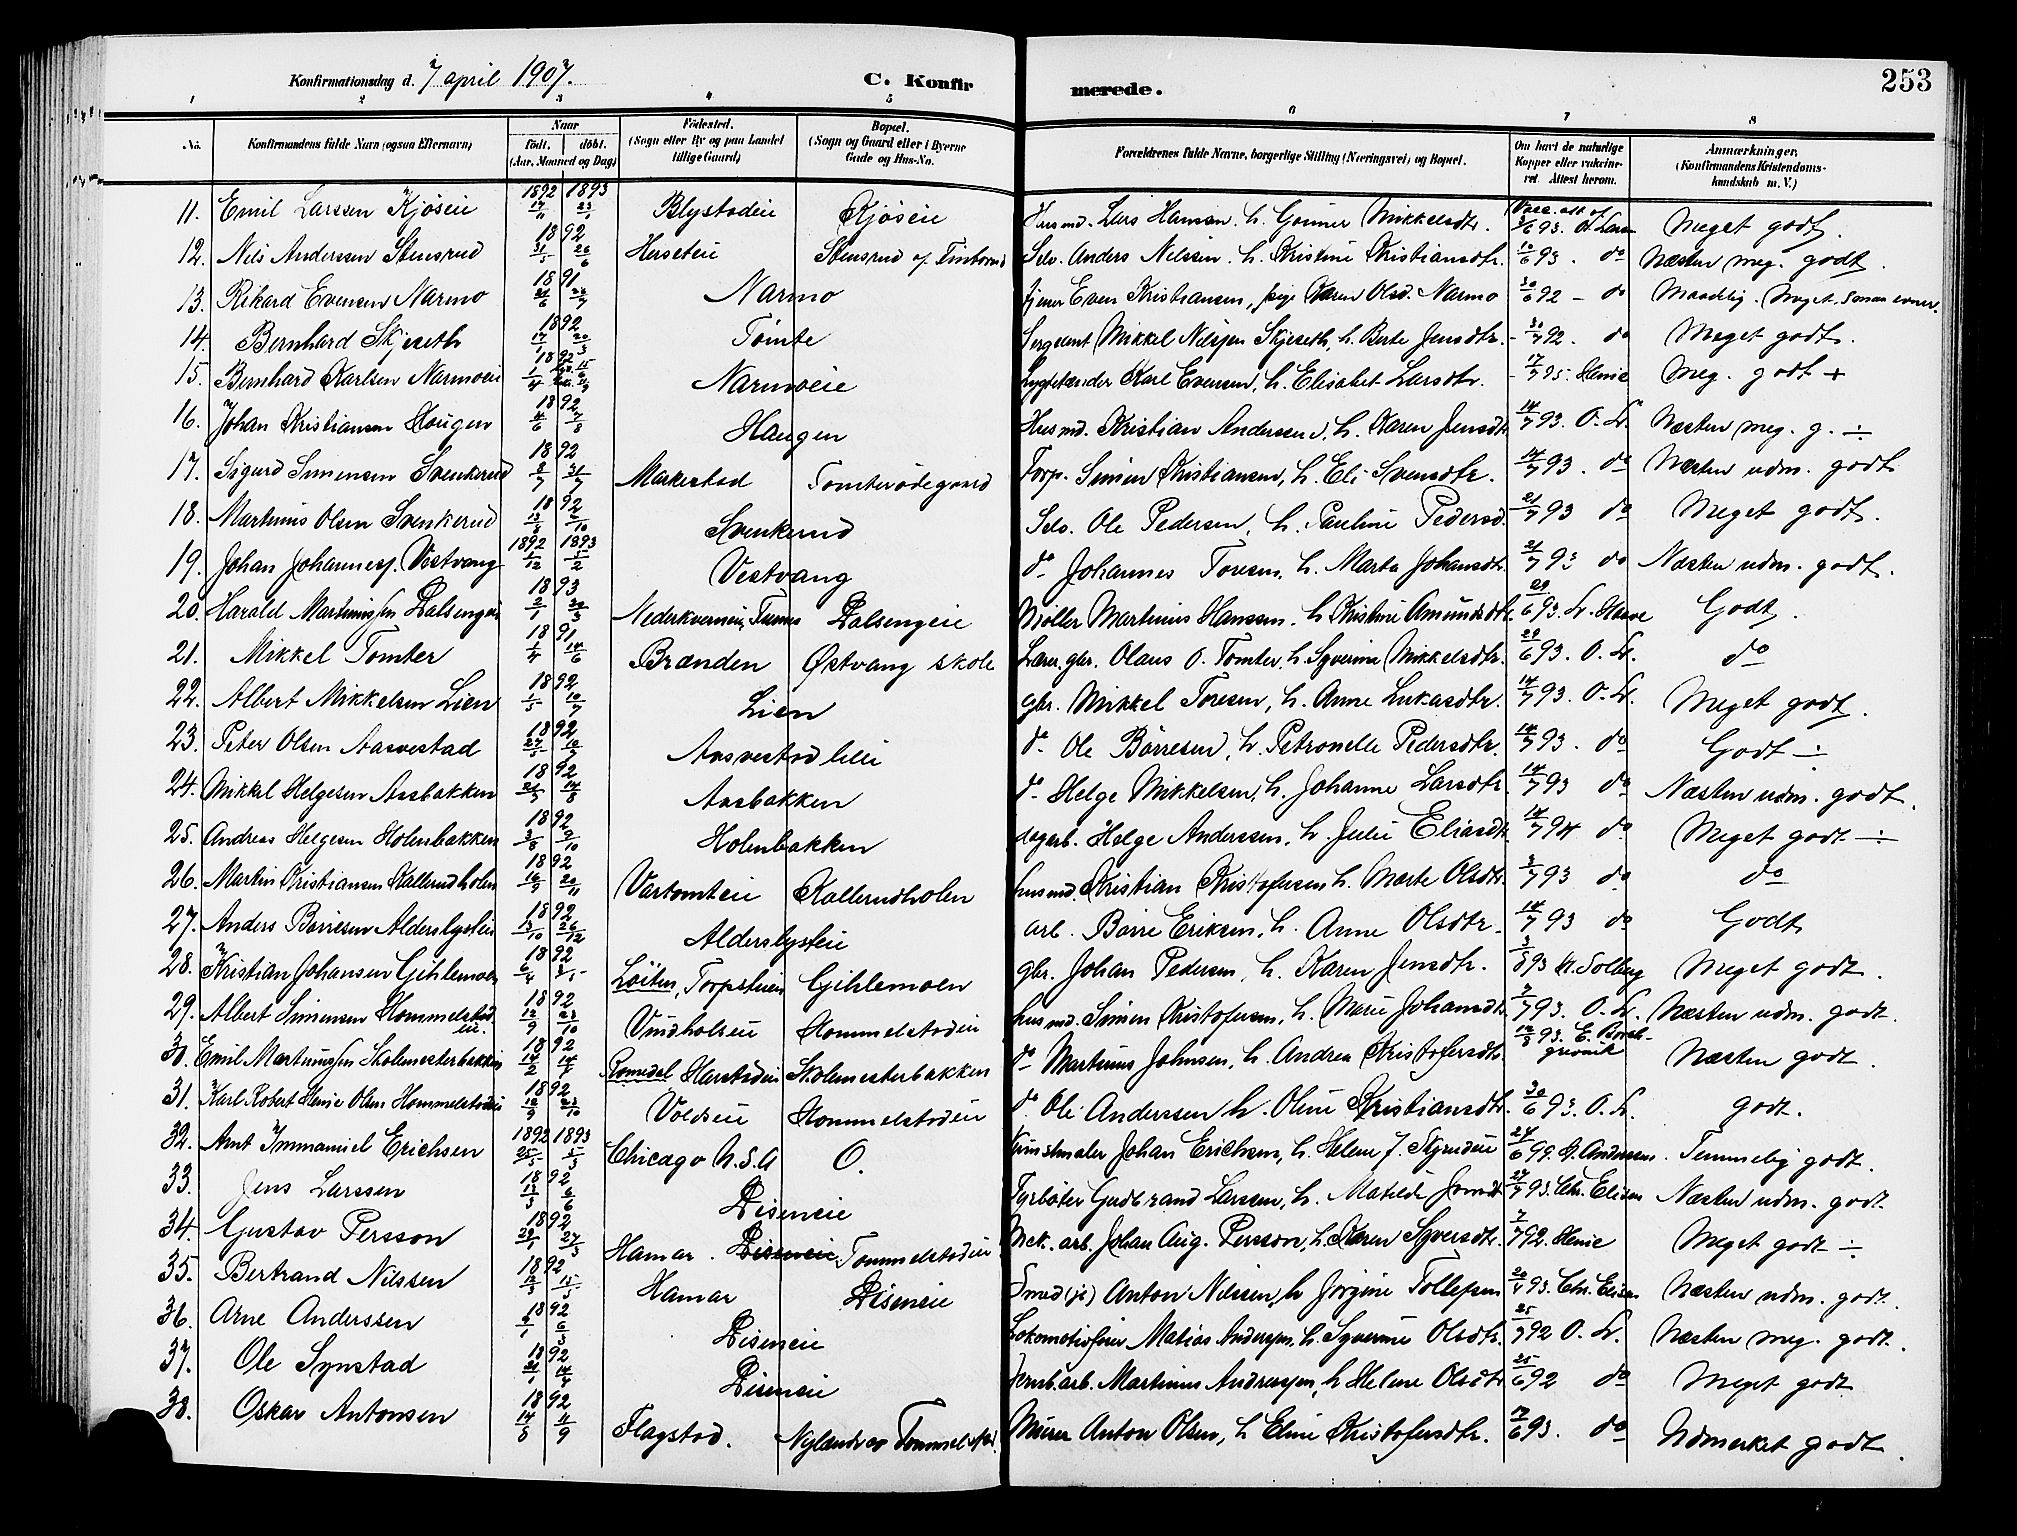 Konfirmationsdag d. 7 april 1907. C. Konfirmerede. 253
1 2 3 4 5 6 7 8
No. Konfirmandens fulde Navn (ogsaa Efternavn) Naar født. døbt. (Aar, Maaned og Dag) Fødested. (Sogn eller By og paa Landet tillige Gaard) Bopæl. (Sogn og Gaard eller i Byerne Gade og Hus-No. Forældrenes fulde Navne, borgerlige Stilling (Næringsvei) og Bopæl. Om havt de naturlige Kopper eller vakcineret. Attest herom. Anmærkninger. (Konfirmandens Kristendomskundskab m. V.)
11. Emil Larssen Kjöseie 1892 17/11 1893 23/1 Blystadeie Kjöseie Husmd. Lars Hansen h. Gunner Mikkelsdtr. Vacc. att. af 3/6 93. Meget godt.
12. Nils Anderssen Stensrud 1892 31/5 26/6 Herseteie Stensrud Selv. Anders Nilssen h. Kristine Kristiansdtr. 10/6 93. do Næsten meg. godt.
13. Rikard Evensen Narmo 1891 21/6 Narmo tjener Even Kristiansen, pige Karen Olsd. Narmo 30/6 92 - do Maadelig. Meget smaa evner.
14. Bernhard Skjeseth 1892 17/1 20/3 Tömte Sergeant Mikkel Nilssen Skjeseth, h. Berte Jensdtr. 30/7 92. do Meget godt.
15. Bernhard Karlsen Narmoeie 1892 1/4 Narmoeie Lygtetænder Karl Evensen, h. Elisabet Larsdtr. 17/7 95. Henie Meg. godt +
16. Johan Kristiansen Haugen 1892 4/6 7/8 Haugen Husmd. Kristian Anderssen, h. Karen Jensdtr. 14/7 93. O. L. Næsten meg. g. ÷
17. Sigurd Simensen Svenkerud 1892 8/7 31/7 Markestad Tomterödegaard Torp. Simen Kristiansen, h. Eli Svensdtr. 14/7 93. do Næsten udm. godt
18. Martinus Olsen Svenkerud 1892 13/8 2/10 Svenkerud Selv. Ole Pedersen, h. Pauline Pedersd. 21/7 93 do Meget godt.
19. Johan Johanness. Vestvang 1892 1/12 1893 5/2 Vestvang do Johannes Toresen, h. Marta Johansdtr. 21/7 93 do Næsten udm. godt.
20. Harald Martinussen Dalsengeie 1893 2/1 30/3 Nederkverneie, Furnes Dalsengeie Möller Martinus Hanssen, h Kristine Amundsdtr. 28/6 93. Godt.
21. Mikkel Tomter 1891 1/4 14/6 Brænden Østvang skole Lærer, gbr. Olaus O. Tomter, h. Syverine Mikkelsdtr. 28/6 93. O. L. do
22. Albert Mikkelsen Lien 1892 1/5 10/7 Lien gbr. Mikkel Toresen, h. Anne Lukasdtr. 14/7 93. O. L. Meget godt.
23. Peter Olsen Aasvestad 1892 27/5 10/7 Aasvestad lille do Ole Börresen, h. Petronelle Pedersdtr. 14/7 93. do Godt ÷
24. Mikkel Helgesen Aasbakken 1892 14/8 Aasbakken do Helge Mikkelsen, h. Johanne Larsdtr. 14/7 93 do Næsten udm. godt.
25. Andreas Helgesen Holenbakken 1892 3/8 9/10 Holenbakken dagarb. Helge Anderssen, h. Julie Eliasdtr. 14/7 94 do Meget godt ÷
26. Martin Kristiansen Kallerudholen 1892 16/9 20/11 Vartomteie Kallerudholen husmd. Kristian Kristofersen h. Marte Olsdtr. 3/7 93 do do
27. Anders Börresen Alderslysteie 1892 13/10 26/12 Alderslysteie arb. Börre Eriksen, h. Anne Olsdtr. 14/7 93 do Godt
28. Kristian Johansen Gihlemoen 1892 6/4 Löiten, Torpsteien Gihlemoen gbr. Johan Pedersen, h. Karen Jensdtr. 3/8 93 Solberg Meget godt.
29. Albert Simensen Hommelstadeie. 1892 12/9 23/10 Vindholseie Hommelstadeie husmd. Simen Kristofersen, h. Marie Johansdtr. 7/7 93. O. L. Næsten udm. godt.
30. Emil Martinussen Skolemesterbakken 1892 14/2 Romedal Harstadeie Skolemesterbakken do Martinus Johnsen, h. Andrea Kristofersdtr. 12/8 93. E. Borchgrevink Næsten godt.
31. Karl Robert Henie Olsen Hommelstadeie 1892 12/9 23/10 Voldseie Hommelstadeie do Ole Anderssen h. Oline Kristiansdtr. 30/6 93. O. L. godt.
32. Arnt Immanuel Erichsen 1892 25/5 1893 5/3 Chicago U.S.A O. Kunstmaler Johan Erichsen, h. Helene J. 24/6 99. Anderssen. Temmelig godt.
33. Jens Larssen 1892 13/3 6/6 Diseneie Fyrböter Gudbrand Larssen, h. Matilde 27/7 93. Chr. Elisen Næsten udm. godt.
34. Gustav Persson 1892 29/1 27/3 Hamar. Disenseie Tommelstadeie Mek. arb. Johan Aug. Persson, h. Karen Syversdtr. 7/7 92. Henie Meget godt ÷
35. Bertrand Nilssen 1892 12/3 15/5 Hamar Disenseie Smed (je) Anton Nilssen, h Jörgine Tollefsen 20/4 93. Chr. Elisen Næsten udm. godt.
36. Arne Anderssen 1892 2/1 6/3 Disenseie Lokomotivfører Matias Anderssen, h. Syverine Olsdtr. 25/7 92 O. L. Næsten meg. godt.
37. Ole Synstad 1892 21/1 14/4 Disenseie Jernb. arb. Martinus Andreassen, h Helene Olsdtr 25/6 92 do Meget godt
38. Oskar Antonsen 1892 14/8 11/9 Flagstad. Murer Anton Olsen, h Eline Kristofersdtr. 12/6 93. do Udmerket godt.